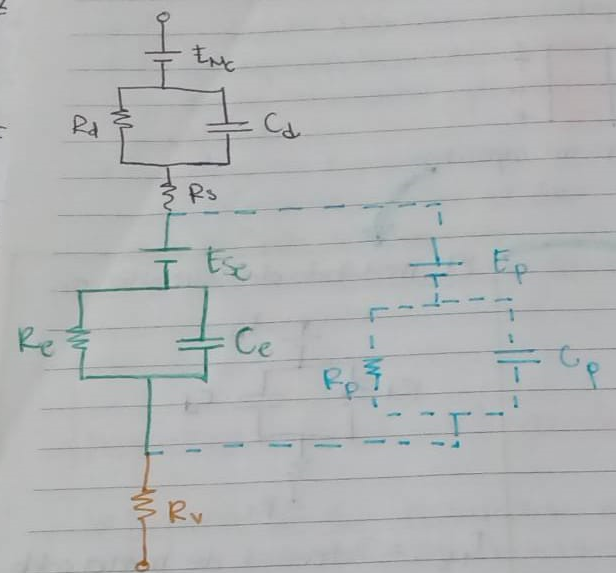 Ehc
Rd
Cd
Rs
Esc
Ep
Re
Ce
Rp
Cp
Rv